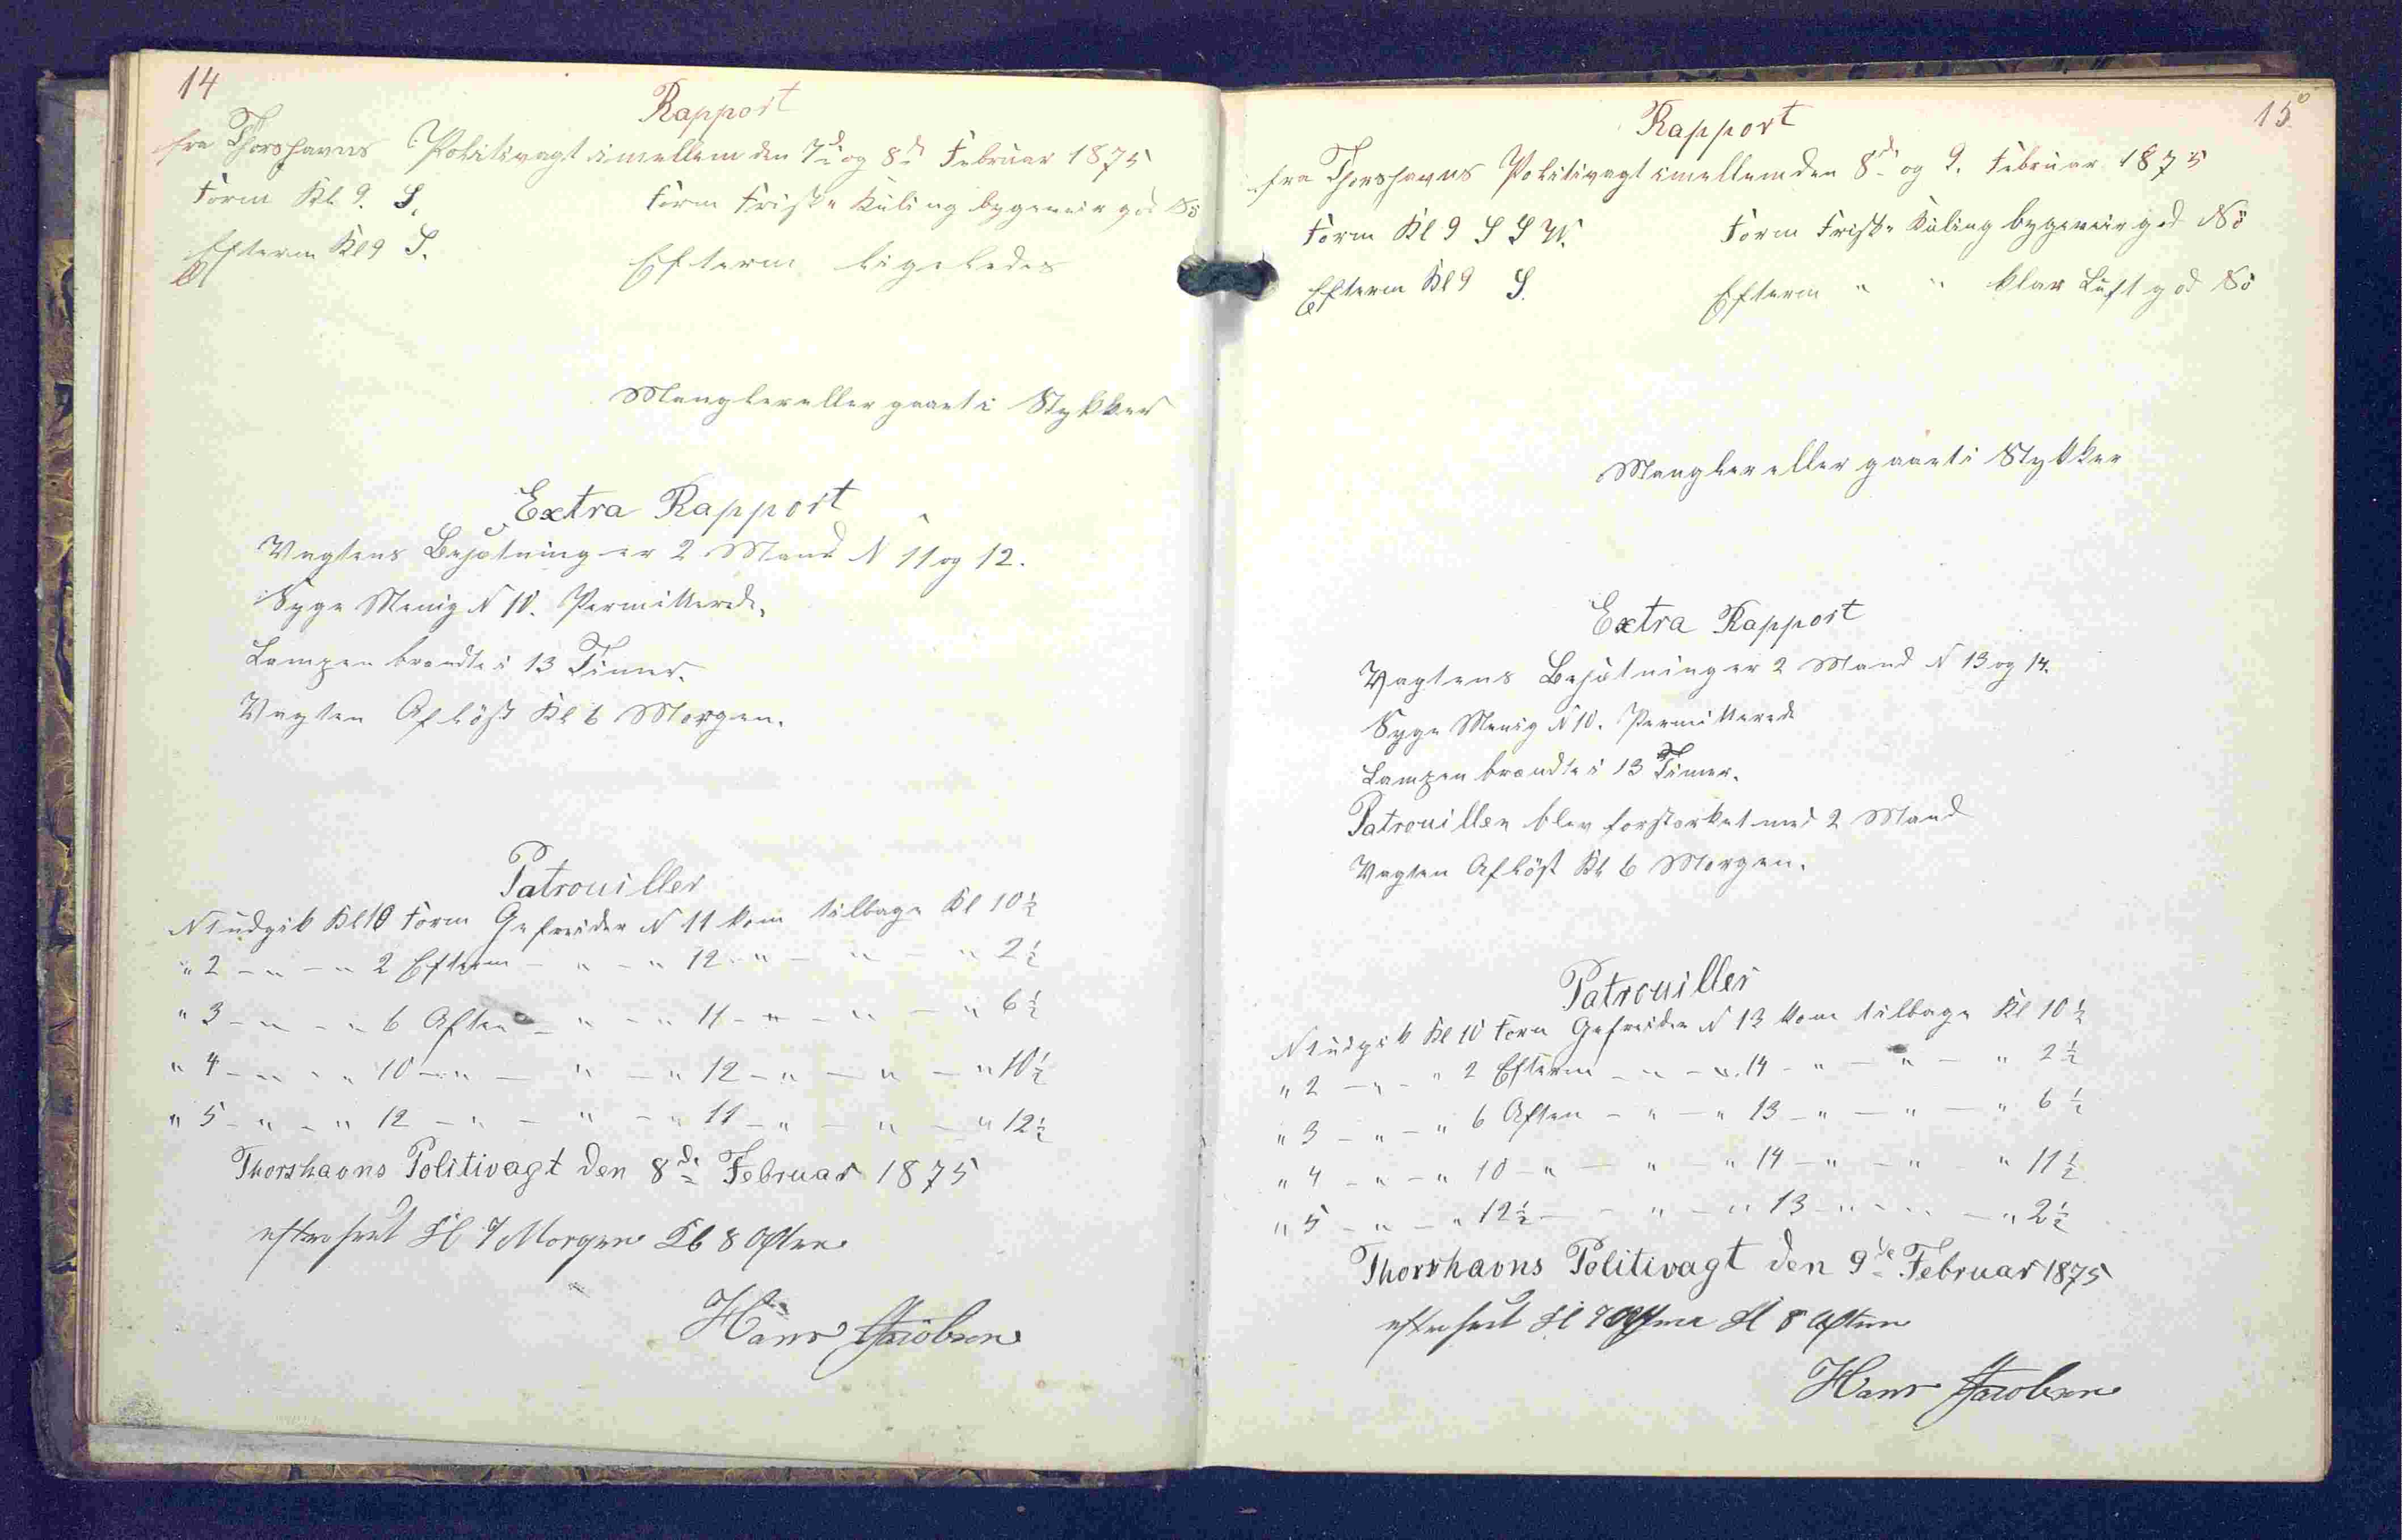 14
Rapport
fra Thorshavns Politivagt imellem den 7de og 8de Februar 1875
Form Kl 9. S.
Form Friske Kuling bygeveir god Sö
Efterm Kl 9 S.
Efterm ligeledes
Mangler eller gaaet i Stykker
Extra Rapport
Vagtens Besætning er 2 Mand N 11 og 12.
Syge Menig N 10. Permitterede.
Lampen brændte i 13 Timer.
Vagten Aflöst Kl 6 Morgen.
Patrouiller
N 1 udgik Kl 10 Form Gefreider N 11 kom tilbage Kl 10½
" 2 - " - " 2 Efterm - " - " 12 - " - " - " 2½
" 3 - " - " 6 Aften - " - " 11 - " - " - " 6½
" 4 - " - " 10 - " - " - " 12 - " - " - " 10½
" 5 - " - " 12 - " - " - " 11 - " - " - " 12½
Thorshavns Politivagt den 8de Februar 1875
efterseet Kl 7 Morgen Kl 8 Aften
Hans Jacobsen
15
Rapport
fra Thorshavns Politivagt imellem den 8de og 9. Februar 1875
Form Kl 9 S S W.
Form Friske Kuling bygeveir god Sö
Efterm Kl 9 S.
Efterm " " klar Luft god Sö
Mangler eller gaaet i Stykker
Extra Rapport
Vagtens Besætning er 2 Mand N 13 og 14.
Syge Menig N 10. Permitterede
Lampen brændte i 13 Timer.
Patrouillen blev forstærket med 2 Mand
Vagten Aflöst Kl 6 Morgen.
Patrouiller
N 1 udgik Kl 10 Form Gefreider N 13 kom tilbage Kl 10½
" 2 - " - " 2 Efterm - " - " 14 - " - " - " 2½
" 3 - " - " 6 Aften - " - " 13 - " - " - " 6½
" 4 - " - " 10 - " - " - " 14 - " - " - " 11½
" 5 - " - " 12½ - " - " 13 - " - " - " 2½
Thorshavns Politivagt den 9de Februar 1875
efterseet Kl 7 Kl 8 Aften
Hans Jacobsen